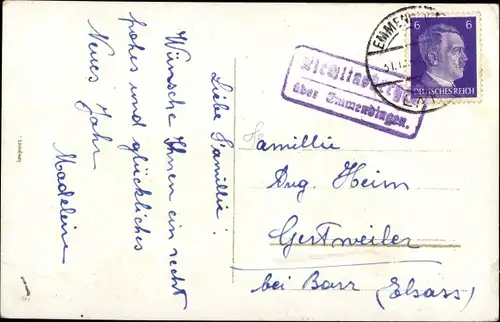 Liebe Familie!
Wünsche Ihnen ein recht
frohes und glückliches
Neues Jahr
Madeleine
6 6
DEUTSCHES REICH
über Emmendingen.
Familie
Aug. Heim
Gertweiler
bei Barr (Elsass)